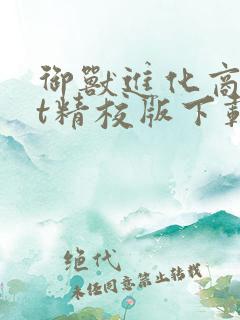 御獸進化商
t精校版下載
绝代
未经同意禁止转载